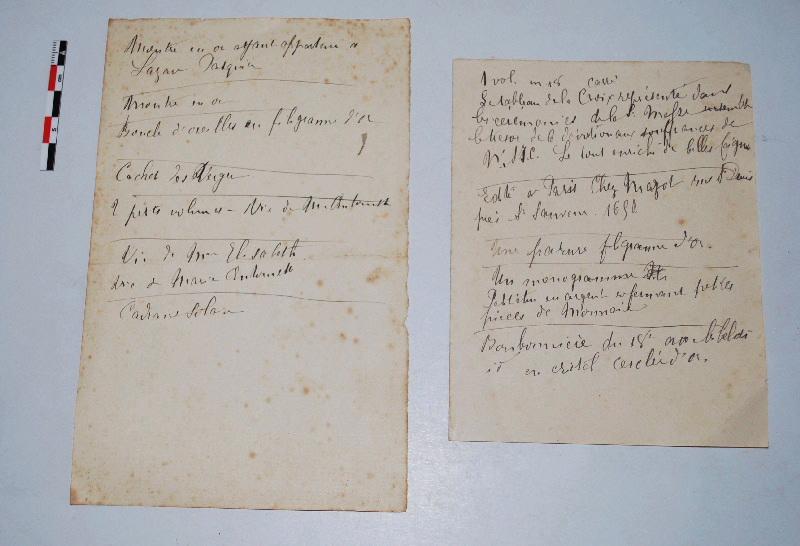 Montre en or ayant appartenu a
Lazare
Montre en or
Boucle d'oreilles en filigranne d'or
Cachet
2 petits volumes - Vie de M. Antoinette
Vie de Mme Elisabeth
Vie de Marie Antoinette
Cadrans Solaire
1 vol. in 18 carré
Le tableau de la Croix représenté dans
les ceremonies de la Ste Messe ensemble
le tresor de la dévotion aux souffrances de
N. S. J. C. Le tout enrichi de belles figures
Edité a Paris Chez Mazot rue St Denis
près St Sauveur. 1652
Une parure filigranne d'or.
Un monogramme
en argent renfermant petites
pièces de Monnaie
Bonbonnière du 18e avec
id en cristal cerclée d'or.